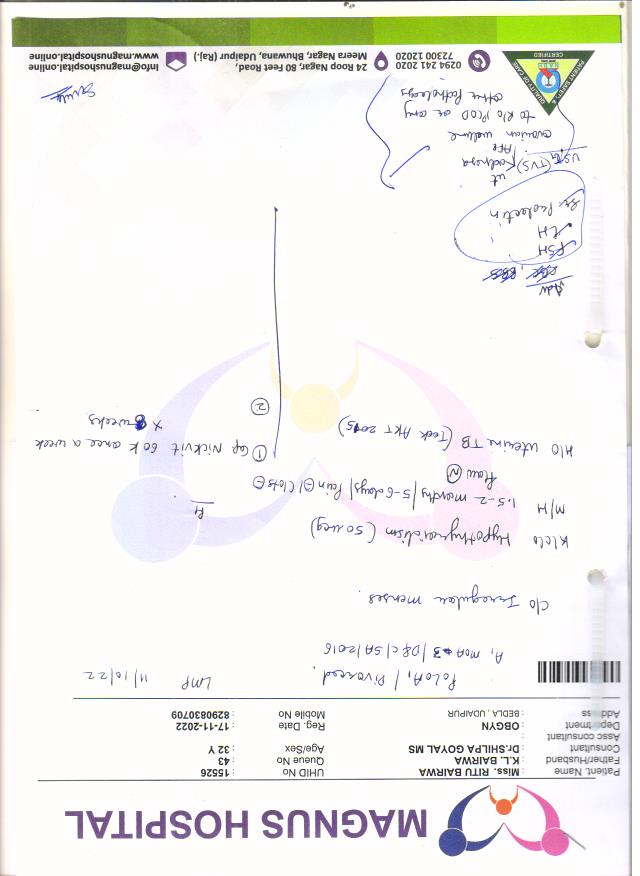 MAGNUS HOSPITAL
Patient. Name : Miss. RITU BAIRWA UHID No : 15526
Father/Husband : K.L. BAIRWA Queue No : 43
Consultant : Dr.SHILPA GOYAL MS Age/Sex : 32 Y
Assc consultant :
Department : OBGYN Reg. Date : 17-11-2022
Address : BEDLA , UDAIPUR Mobile No : 8290830709
P0L0A1 / Divorced. LMP 11/10/22
A1 MOA 3 / D&C / SA / 2016
C/O Irregular menses.
K/C/O Hypothyroidism (50 mcg)
M/H 1.5-2 months / 5-6 days / Pain ⊖ / Clots ⊖
Flow Ⓝ
H/O uterine TB (Took AKT 2015)
Rx
① Cap Nickvit 60k once a week
x 8 weeks
②
Adv
FSH
LH
Sr. Prolactin
USG (TVS) ut
adnexa
AFC
ovarian volume
to R/o PCOD or any
other Pathology
PATIENT SAFETY &
QUALITY OF CARE
NABH
CERTIFIED
0294 241 2020
72300 12020
24 Room Nagar, 80 Feet Road,
Meera Nagar, Bhuwana, Udaipur (Raj.)
Info@magnushospital.online
www.magnushospital.online